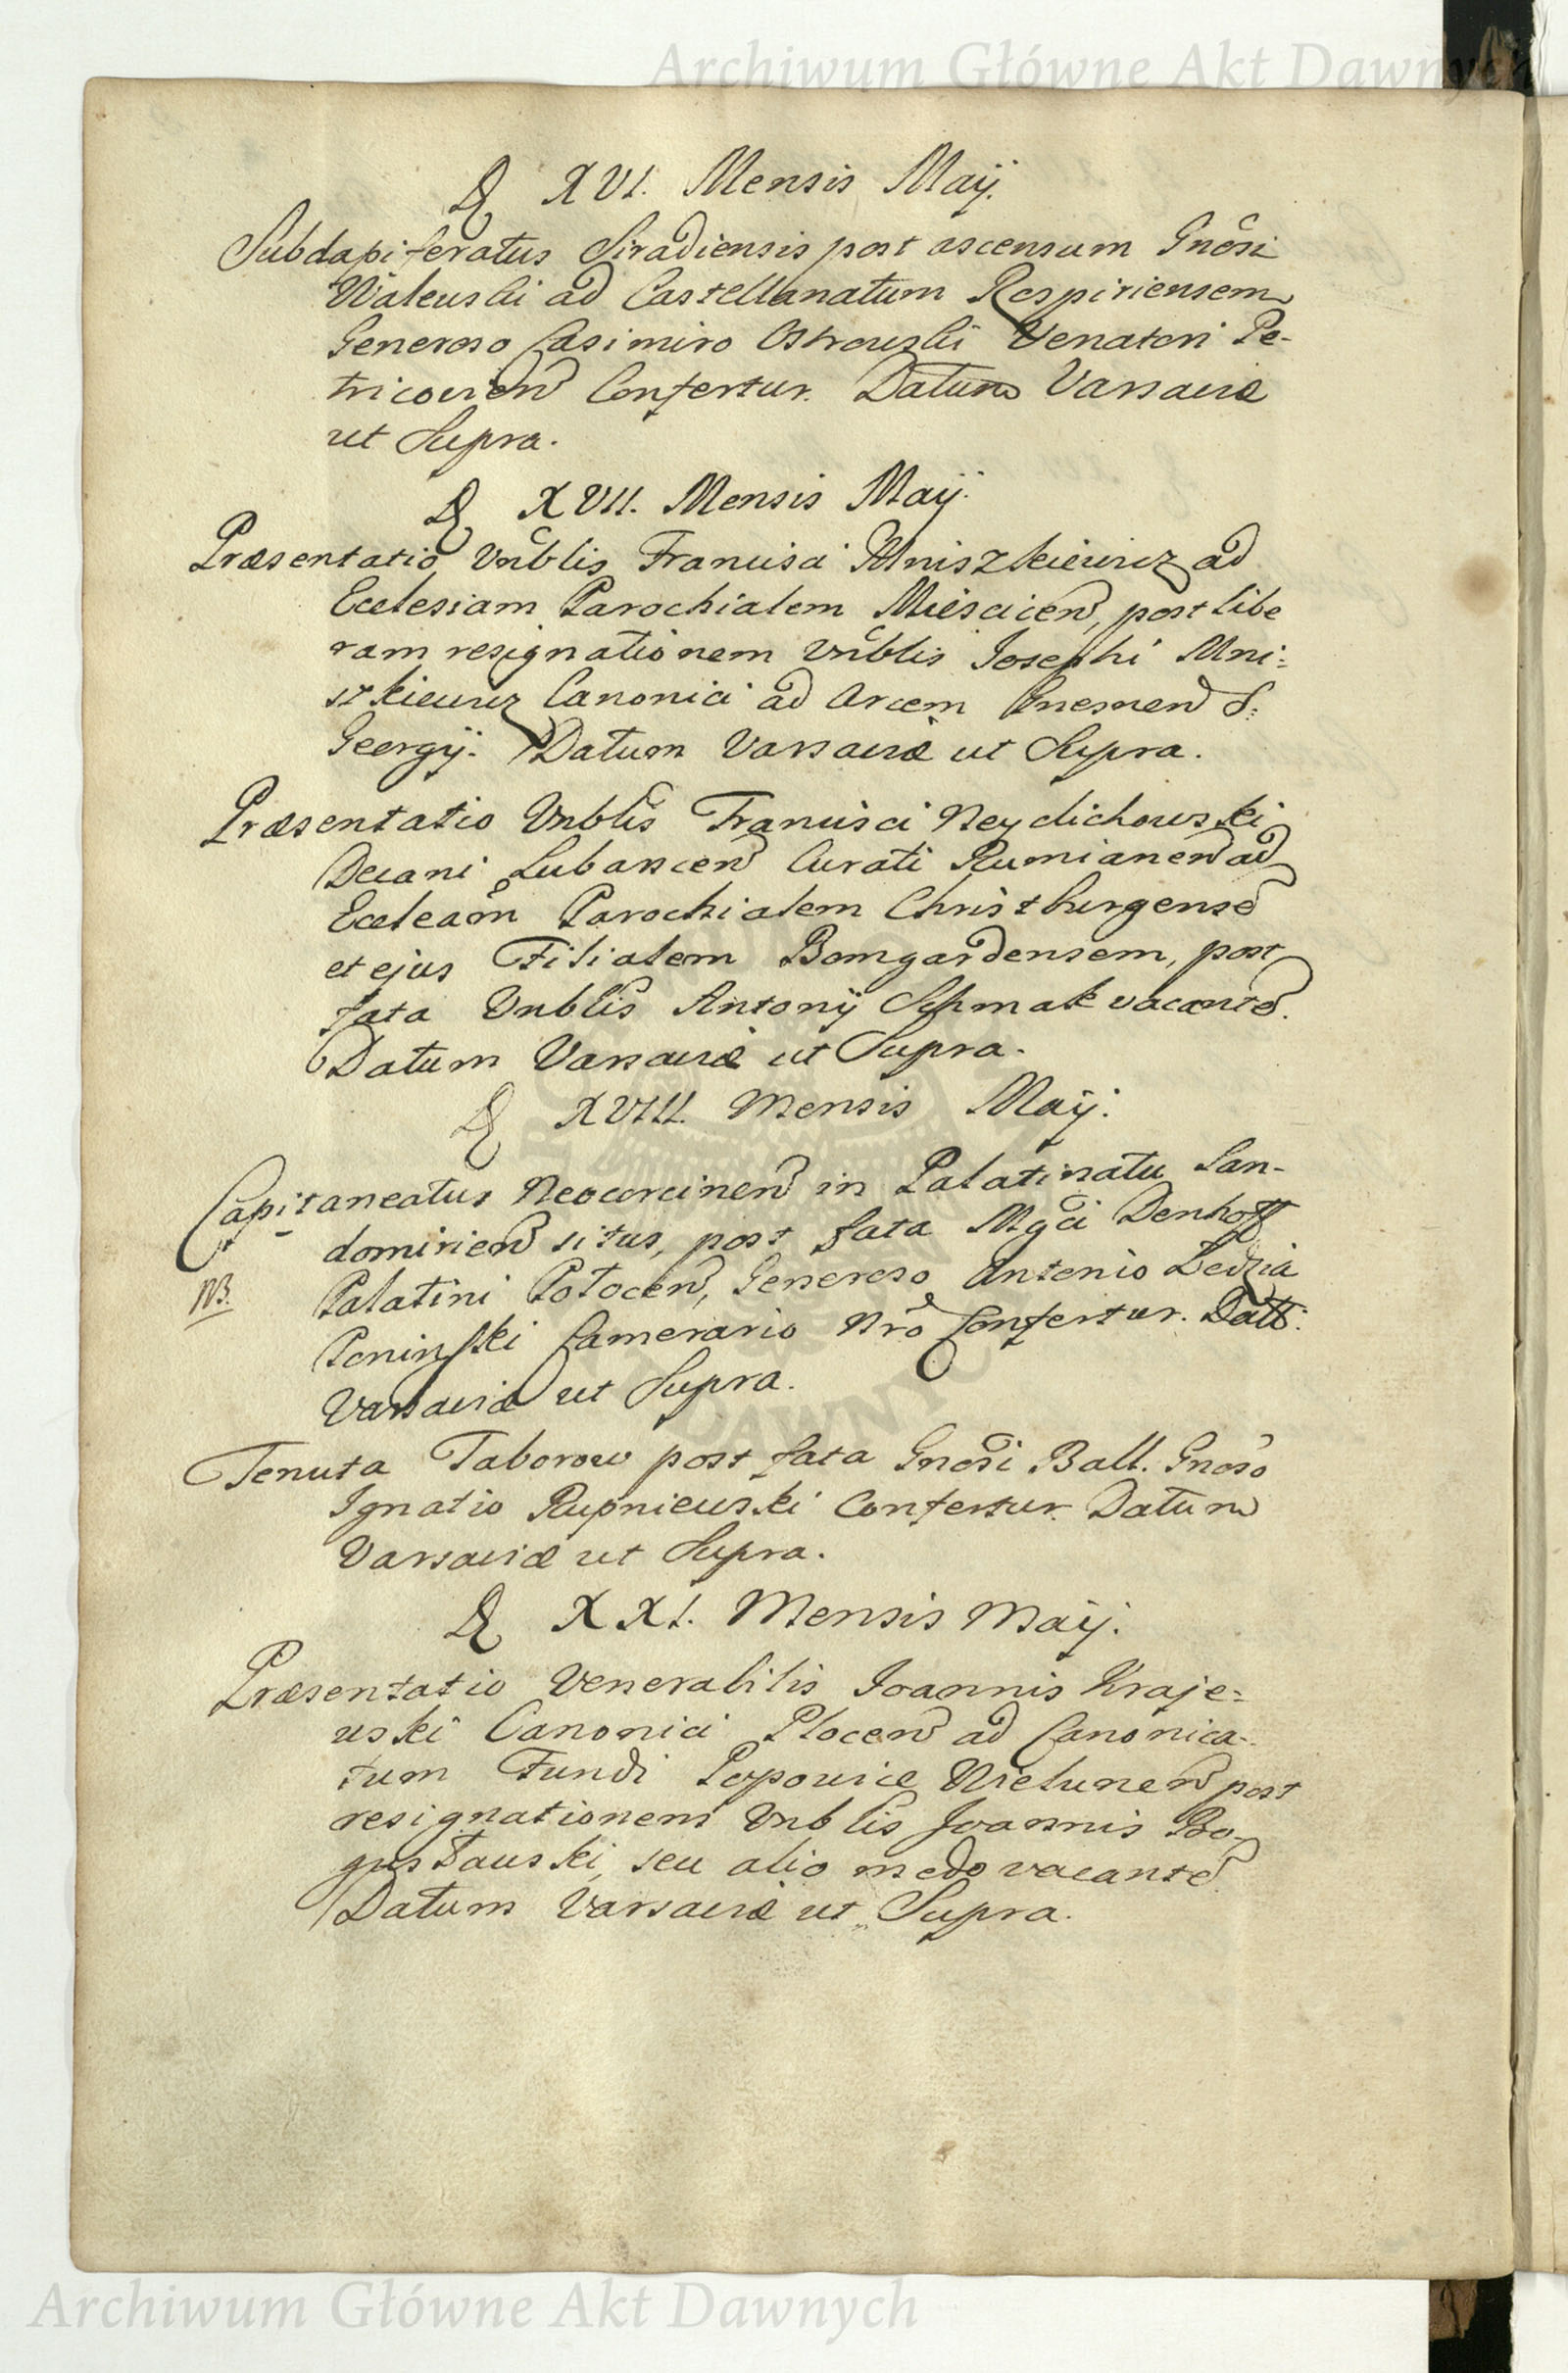 Archiwum Główne Akt Dawnych
D. XVI. Mensis Maij.
Subdapiferatus Siradiensis post ascensum Gnosi
Walewski ad Castellanatum Rospiriensem
Generoso Casimiro Ostrowski Venatori Pe-
tricovien Confertur. Datum Varsaviæ
ut Supra.
D. XVII. Mensis Maij.
Præsentatio Vnblis Francisci Mniszkiewicz ad
Ecclesiam Parochialem Mieścicen, post libe
ram resignationem Vnblis Josephi Mni=
szkiewicz Canonici ad Arcem Gnesnen S:
Georgij. Datum Varsaviæ ut Supra.
Præsentatio Vnblis Francisci Neydichowski
Decani Lubawcen Curati Rumianen ad
Eccleam Parochialem Christburgense
et ejus Filialem Bomgardensem, post
fata Vnblis Antonij Schmak vacante.
Datum Varsaviæ ut Supra.
D. XVIII. Mensis Maij.
Capitaneatus Neocorcinen in Palatinatu San-
domirien situs, post fata Mgci Denhoff
NB. Palatini Potocen, Generoso Antonio Łedzia
Poninski Camerario Nro Confertur. Datt:
Varsaviæ ut Supra.
Tenuta Taborow post fata Gnosi Ball. Gnoso
Ignatio Rupniewski Confertur. Datum
Varsaviæ ut Supra.
D. XXI. Mensis Maij.
Præsentatio Venerabilis Joannis Kraje=
wski Canonici Plocen ad Canonica-
tum Fundi Popowice Wielunen post
resignationem Vnblis Joannis Bo-
gusławski, seu alio modo vacante
Datum Varsaviæ ut Supra.
Archiwum Główne Akt Dawnych